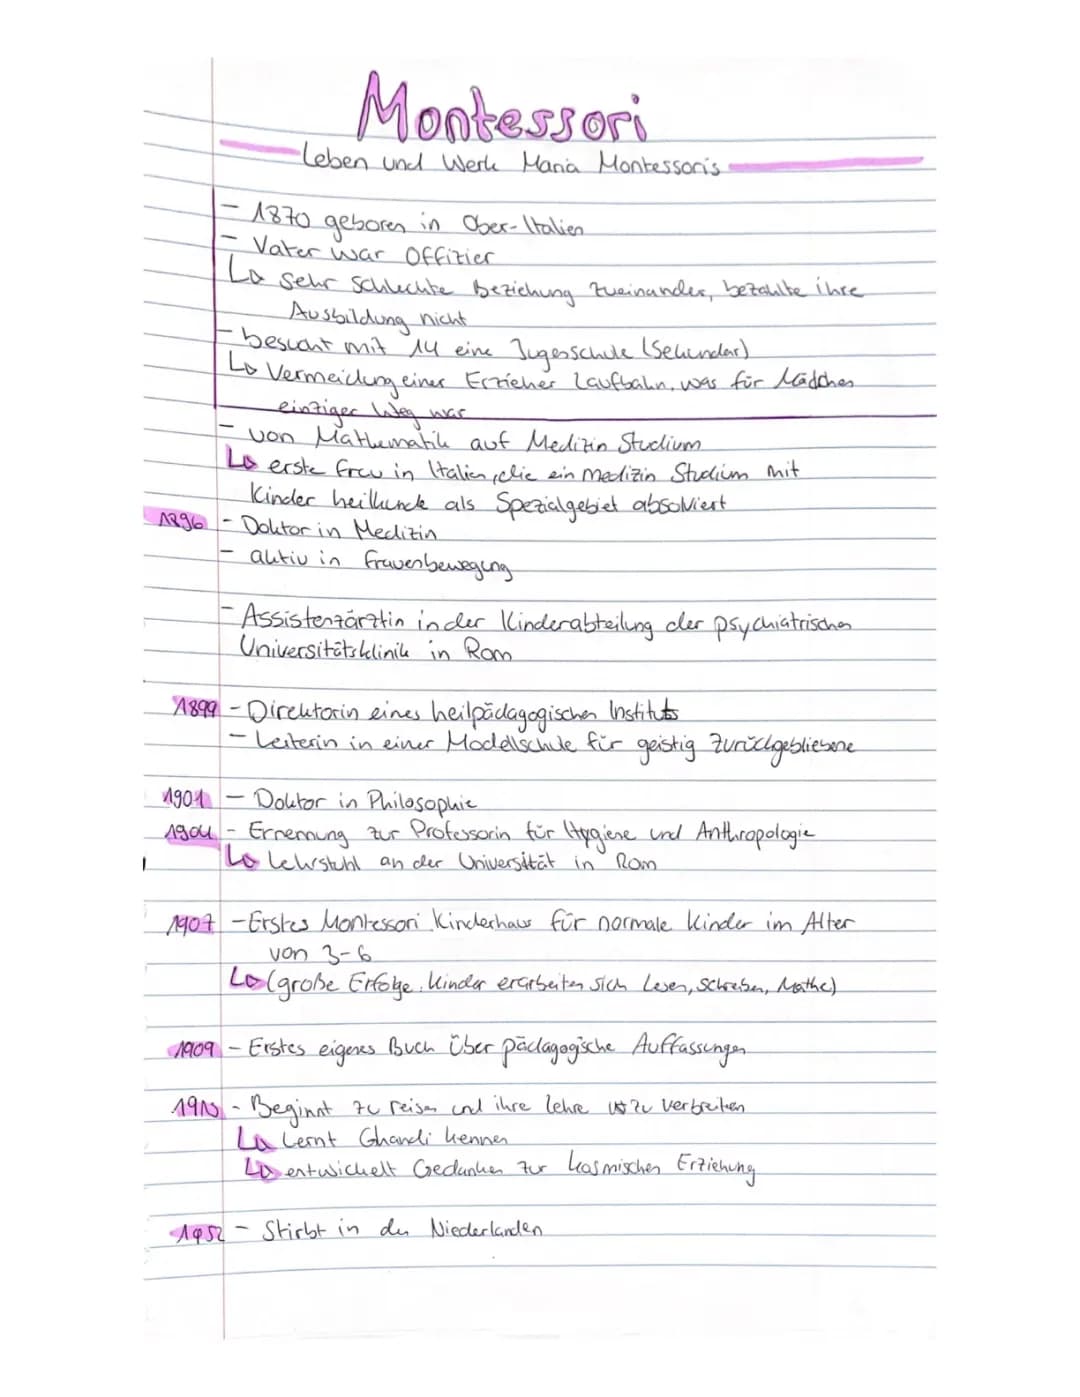 Montessori
Leben und Werk Maria Montessori's
- 1870 geboren in Ober-Italien
- Vater war Offizier
↳ sehr schlechte Beziehung zueinander, bezahlte ihre
Ausbildung nicht
- besucht mit 14 eine Jugesschule (Sekundar)
↳ Vermeidung einer Erzieher Laufbahn, was für Mädchen
einziger Weg war
- von Mathematik auf Medizin Studium
↳ erste Frau in Italien, die ein medizin Studium mit
Kinder heilkunde als Spezialgebiet absolviert
1896 - Doktor in Medizin
- aktiv in Frauenbewegung
- Assistenzärztin in der Kinderabteilung der psychiatrischen
Universitätsklinik in Rom
1899 - Direktorin eines heilpädagogischen Instituts
- Leiterin in einer Modellschule für geistig Zurückgebliebene
1901 - Doktor in Philosophie
1904 - Ernennung zur Professorin für Hygiene und Anthropologie
↳ Lehrstuhl an der Universität in Rom
1907 - Erstes Montessori Kinderhaus für normale Kinder im Alter
von 3-6
↳ (große Erfolge. Kinder erarbeiten sich Lesen, schreiben, Mathe)
1909 - Erstes eigenes Buch über pädagogische Auffassungen
- Beginnt zu reisen und ihre Lehre zu verbreiten
↳ Lernt Ghandi kennen
↳ entwickelt Gedanken zur kosmischen Erziehung
1952 - Stirbt in den Niederlanden